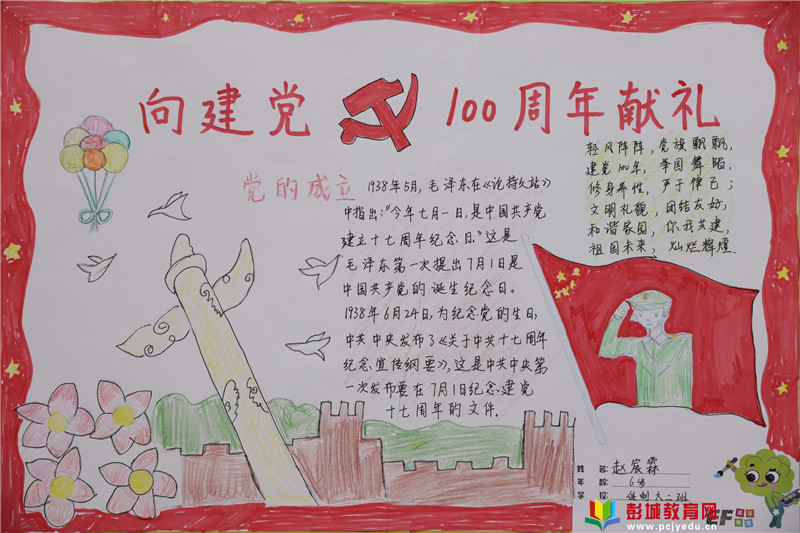 向建党 100周年献礼
党的成立
1938年5月,毛泽东在《论持久站》
中指出:“今年七月一日,是中国共产党
建立十七周年纪念日。”这是
毛泽东第一次提出7月1日是
中国共产党的诞生纪念日。
1938年6月24日,为纪念党的生日,
中共中央发布了《关于中共十七周年
纪念宣传纲要》,这是中共中央第
一次发布要在7月1日纪念建党
十七周年的文件.
轻风阵阵,党旗飘飘,
建党100年,举国舞蹈,
修身养性,严于律己;
文明礼貌,团结友好,
和谐家园,你我共建,
祖国未来,灿烂辉煌.
姓 名: 赵宸霖
年 龄: 6岁
学 校: 大二班
彭城教育网
www.pcjyedu.cn
EF